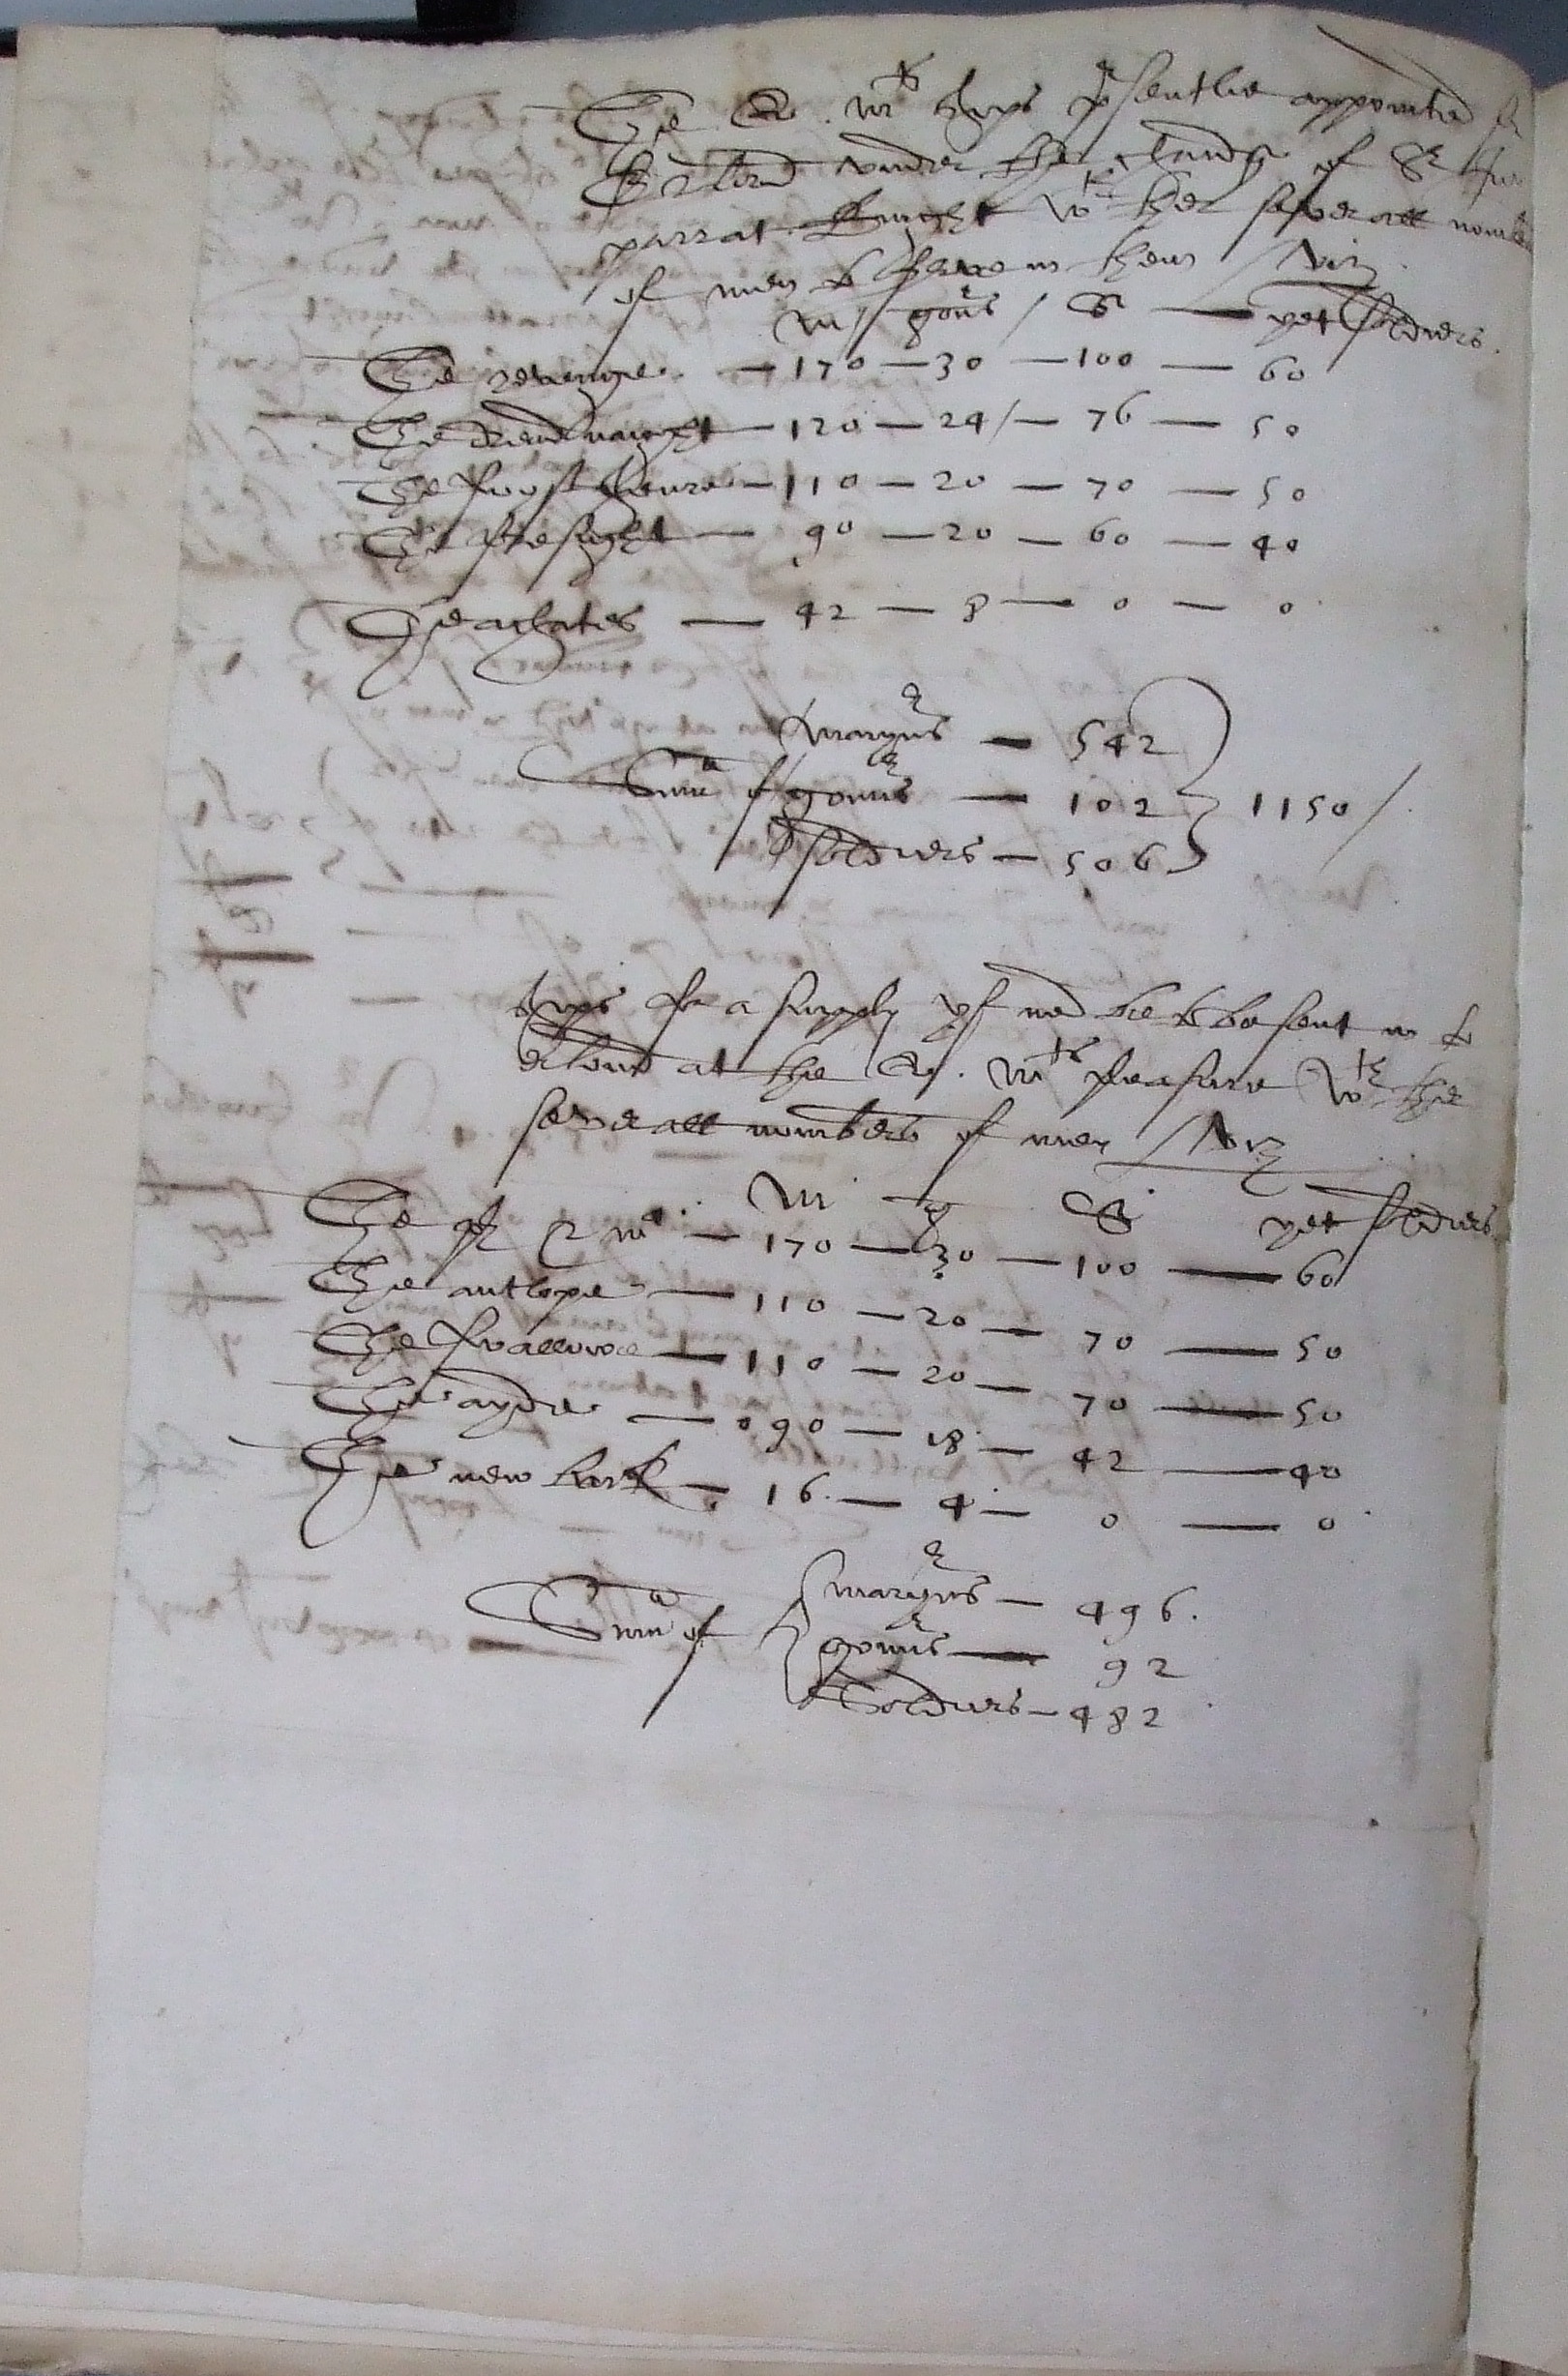 The Q. mts shyps presentlie appointed for
Ierland vnder the chardg of Sr Jhn
parrat knyght wth ther severall nombers
of men to serve in them / viz
m / gonrs / S — yet soldiers.
The revenge. — 170 — 30 — 100 — 60
The dreadnaught — 120 — 24 / — 76 — 50
The swyftshure — 110 — 20 — 70 — 50
The foresight — 90 — 20 — 60 — 40
The achates — 42 — 8 — 0 — 0
maryns — 542
Suma of gonrs — 102 } 1150 /
soldiers — 506
shyps for a supply yf ned be to be sent in to
Ierland at the Q. mts pleasure wth the
severall nombers of men / viz
m g S yet soldiers
The — 170 — 30 — 100 — 60
The antlope — 110 — 20 — 70 — 50
The swallowe — 110 — 20 — 70 — 50
The ayde — 90 — 18 — 42 — 40
The new bark — 16. — 4 — 0 — 0
maryns — 496.
Suma of gonrs — 92
Soldiers — 482